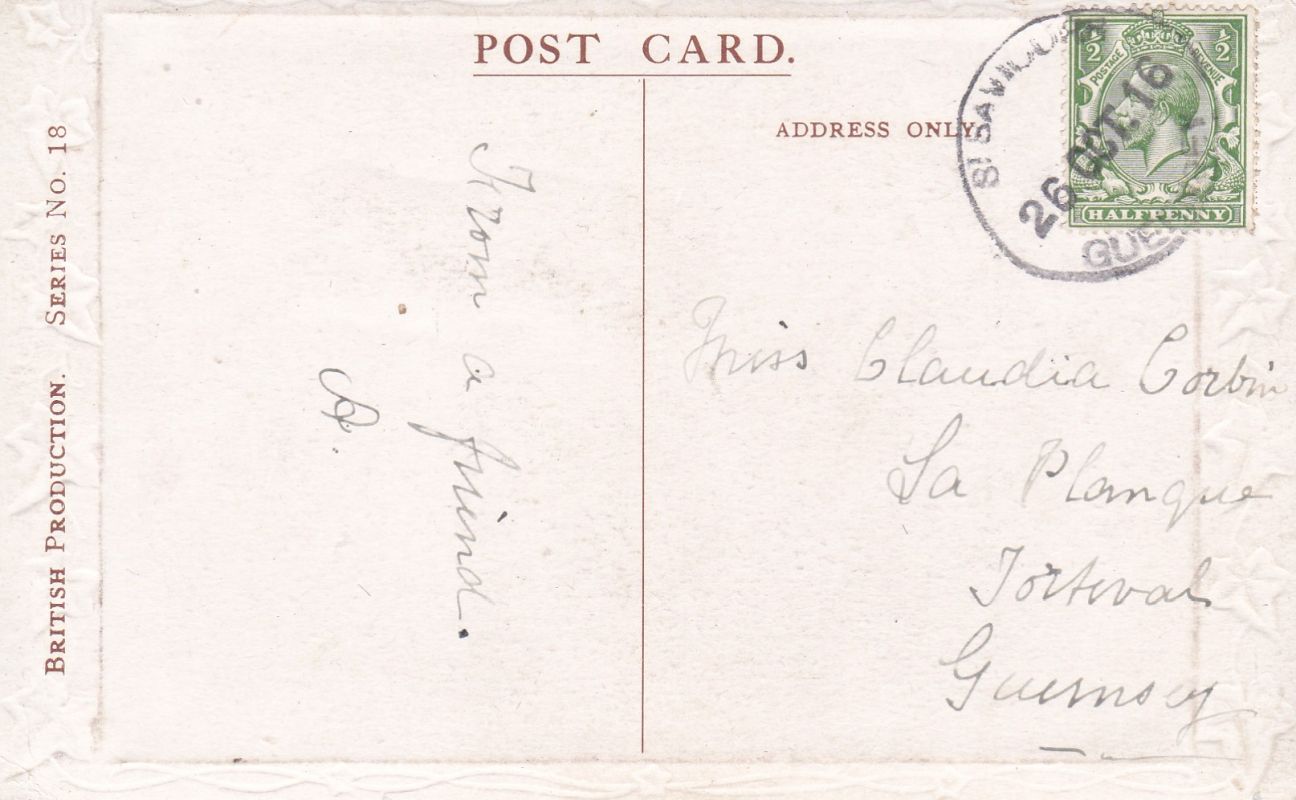 POST CARD.
ADDRESS ONLY
BRITISH PRODUCTION. SERIES No. 18
From a friend.
A.
Miss Claudia Corbin
La Planque
Torteval
Guernsey
½ ½
POSTAGE REVENUE
HALFPENNY
ST SAVIOURS
26 OCT. 16
GUERNSEY